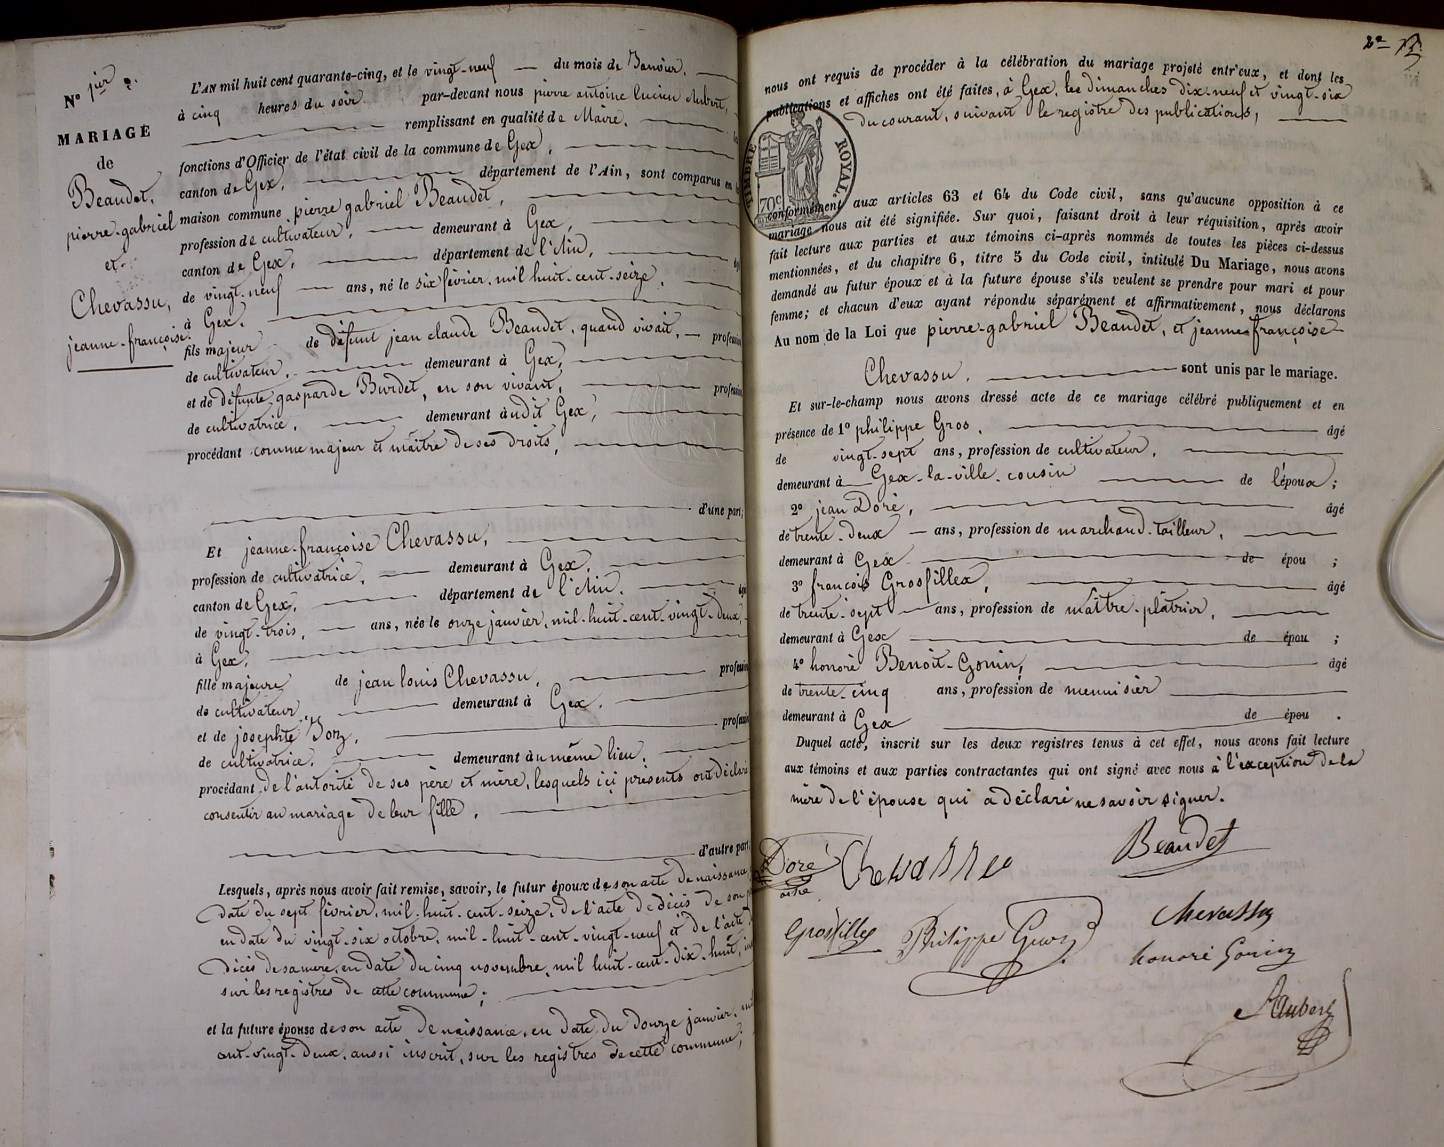 N° 1ier
MARIAGE
de
Beaudet,
pierre-gabriel
et
Chevassu,
jeanne-françoise
L'AN mil huit cent quarante-cinq, et le vingt-neuf du mois de Janvier,
à cinq heures du soir par-devant nous pierre antoine lucien Aubert,
remplissant en qualité de Maire, les
fonctions d'Officier de l'état civil de la commune de Gex,
canton de Gex, département de l'Ain, sont comparus en la
maison commune, pierre gabriel Beaudet,
profession de cultivateur, demeurant à Gex,
canton de Gex, département de l'Ain, âgé
de vingt-neuf ans, né le six février, mil-huit-cent-seize,
à Gex,
fils majeur de défunt jean claude Beaudet, quand vivait, profession
de cultivateur, demeurant à Gex,
et de défunte gasparde Burdet, en son vivant, profession
de cultivatrice, demeurant audit Gex,
procédant comme majeur et maître de ses droits,
d'une part;
Et jeanne-françoise Chevassu,
profession de cultivatrice, demeurant à Gex,
canton de Gex, département de l'Ain, âgé
de vingt-trois, ans, née le onze janvier, mil-huit-cent-vingt-deux,
à Gex,
fille majeure de jean louis Chevassu, profession
de cultivateur, demeurant à Gex,
et de josephte profession
de cultivatrice, demeurant au même lieu,
procédant de l'autorité de ses père et mère, lesquels ici présents ont déclaré
consentir au mariage de leur fille,
d'autre part.
Lesquels, après nous avoir fait remise, savoir, le futur époux de son acte de naissance
date du sept février, mil-huit-cent-seize, de l'acte de décès de son
en date du vingt-six octobre, mil-huit-cent-vingt-neuf et de l'acte
décès de sa mère, en date du cinq novembre, mil huit-cent-dix-huit,
sur les registres de cette commune;
et la future épouse de son acte de naissance, en date du douze janvier, mil
cent-vingt-deux, aussi inscrit, sur les registres de cette commune;
2e
nous ont requis de procéder à la célébration du mariage projeté entr'eux, et dont les
publications et affiches ont été faites, à Gex, les dimanches dix-neuf et vingt-six
du courant, suivant le registre des publications,
TIMBRE ROYAL
70c
conformément aux articles 63 et 64 du Code civil, sans qu'aucune opposition à ce
mariage nous ait été signifiée. Sur quoi, faisant droit à leur réquisition, après avoir
fait lecture aux parties et aux témoins ci-après nommés de toutes les pièces ci-dessus
mentionnées, et du chapitre 6, titre 5 du Code civil, intitulé Du Mariage, nous avons
demandé au futur époux et à la future épouse s'ils veulent se prendre pour mari et pour
femme; et chacun d'eux ayant répondu séparément et affirmativement, nous déclarons
Au nom de la Loi que pierre-gabriel Beaudet, et jeanne françoise
Chevassu, sont unis par le mariage.
Et sur-le-champ nous avons dressé acte de ce mariage célébré publiquement et en
présence de 1° philippe Gros, âgé
de vingt-sept ans, profession de cultivateur,
demeurant à Gex-la-ville, cousin de l'époux;
2° jean Doré, âgé
de trente-deux ans, profession de marchand-tailleur,
demeurant à Gex de épou ;
3° françois Grosfillex, âgé
de trente-sept ans, profession de maître-plâtrier,
demeurant à Gex de épou ;
4° honoré Benoit-Gonin, âgé
de trente-cinq ans, profession de menuisier
demeurant à Gex de épou .
Duquel acte, inscrit sur les deux registres tenus à cet effet, nous avons fait lecture
aux témoins et aux parties contractantes qui ont signé avec nous à l'exception de la
mère de l'épouse qui a déclaré ne savoir signer.
Doré Chevassu Beaudet
Grosfillex Philippe Gros Chevassu
honoré Gonin
Aubert